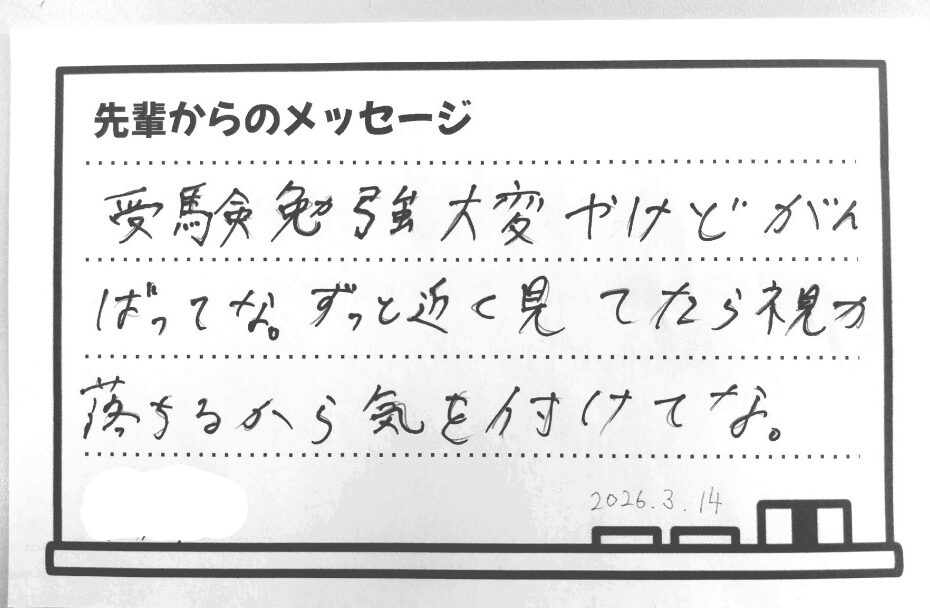 先輩からのメッセージ
受験勉強大変やけどがん
ばってな。ずっと近く見てたら視力
落ちるから気を付けてな。
2026.3.14